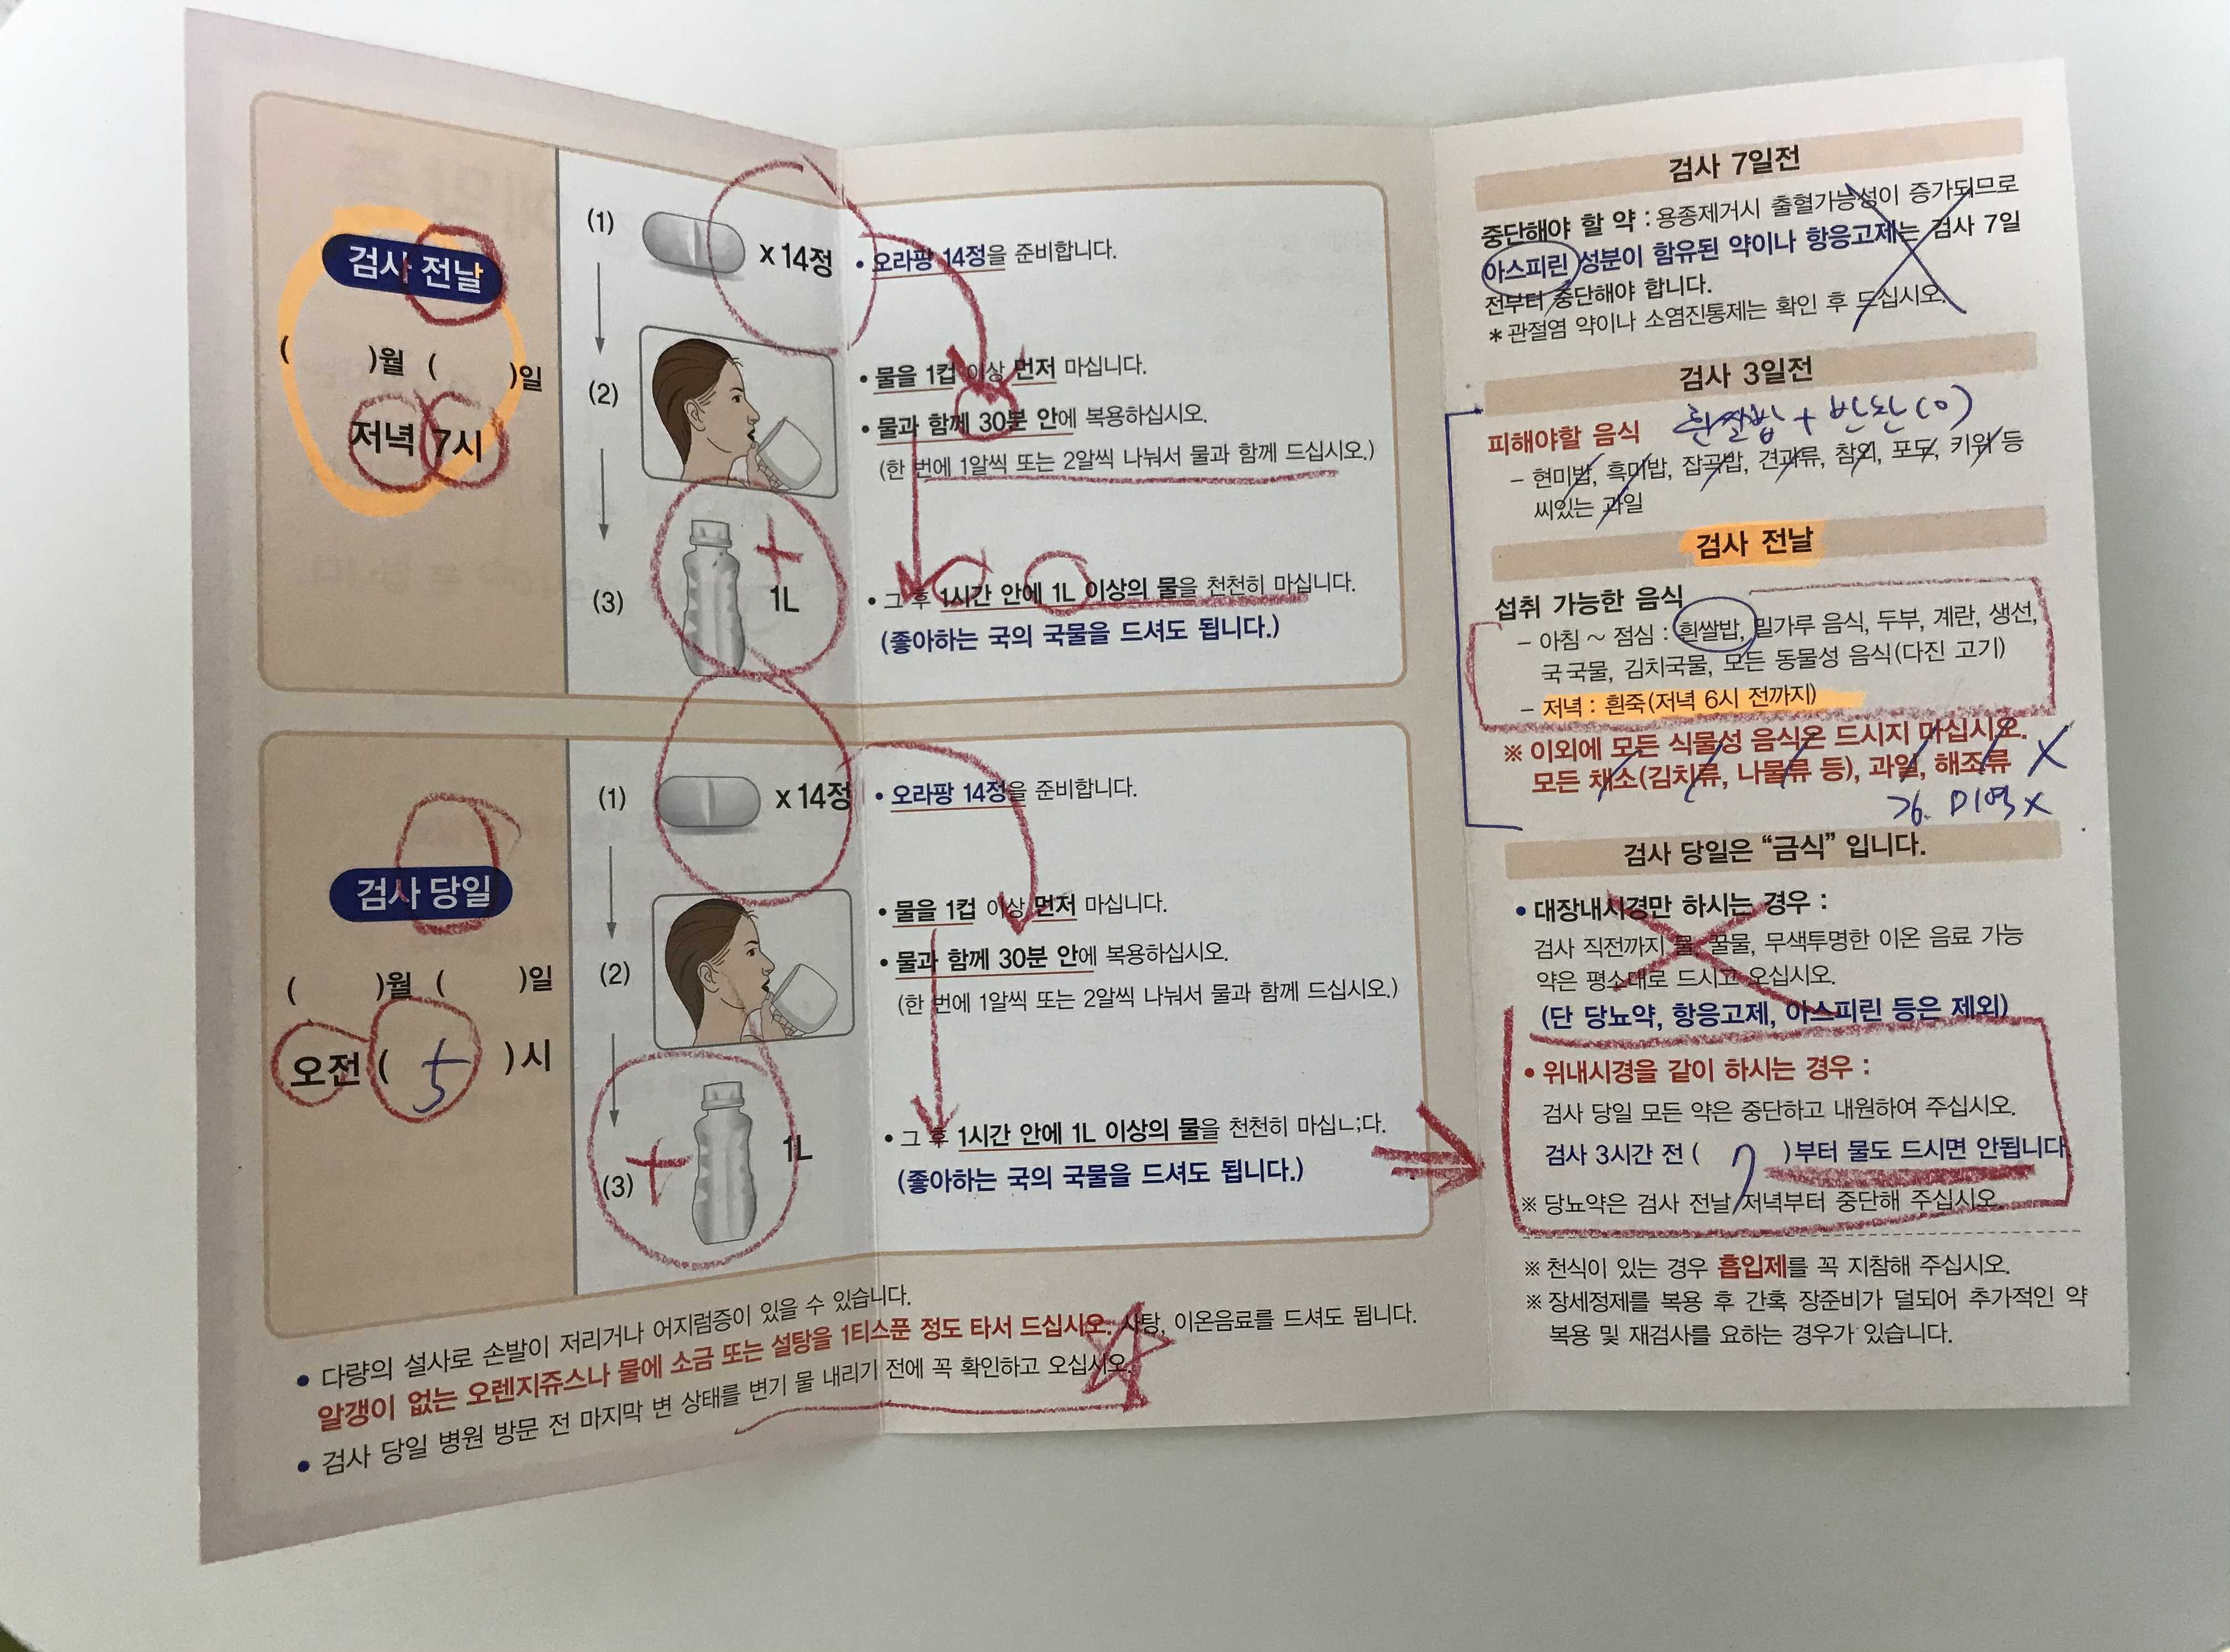 검사 전날
( )월 ( )일
저녁 7시
(1)
x 14정
• 오라팡 14정을 준비합니다.
(2)
• 물을 1컵 이상 먼저 마십니다.
• 물과 함께 30분 안에 복용하십시오.
(한 번에 1알씩 또는 2알씩 나눠서 물과 함께 드십시오.)
(3)
+
1L
• 그 후 1시간 안에 1L 이상의 물을 천천히 마십니다.
(좋아하는 국의 국물을 드셔도 됩니다.)
검사 당일
( )월 ( )일
오전 ( 5 )시
(1)
x 14정
• 오라팡 14정을 준비합니다.
(2)
• 물을 1컵 이상 먼저 마십니다.
• 물과 함께 30분 안에 복용하십시오.
(한 번에 1알씩 또는 2알씩 나눠서 물과 함께 드십시오.)
(3)
+
1L
• 그 후 1시간 안에 1L 이상의 물을 천천히 마십ㄴ;다.
(좋아하는 국의 국물을 드셔도 됩니다.)
• 다량의 설사로 손발이 저리거나 어지럼증이 있을 수 있습니다.
알갱이 없는 오렌지쥬스나 물에 소금 또는 설탕을 1티스푼 정도 타서 드십시오. 사탕, 이온음료를 드셔도 됩니다.
• 검사 당일 병원 방문 전 마지막 변 상태를 변기 물 내리기 전에 꼭 확인하고 오십시오.
검사 7일전
중단해야 할 약 : 용종제거시 출혈가능성이 증가되므로
아스피린 성분이 함유된 약이나 항응고제는 검사 7일
전부터 중단해야 합니다.
* 관절염 약이나 소염진통제는 확인 후 드십시오.
검사 3일전
흰쌀밥 + 반찬(O)
피해야할 음식
– 현미밥, 흑미밥, 잡곡밥, 견과류, 참외, 포도, 키위 등
씨있는 과일
검사 전날
섭취 가능한 음식
– 아침 ~ 점심 : 흰쌀밥, 밀가루 음식, 두부, 계란, 생선,
국 국물, 김치국물, 모든 동물성 음식(다진 고기)
– 저녁 : 흰죽(저녁 6시 전까지)
※ 이외에 모든 식물성 음식은 드시지 마십시오.
모든 채소(김치류, 나물류 등), 과일, 해조류 X
김. 미역 X
검사 당일은 “금식” 입니다.
• 대장내시경만 하시는 경우 :
검사 직전까지 물, 꿀물, 무색투명한 이온 음료 가능
약은 평소대로 드시고 오십시오.
(단 당뇨약, 항응고제, 아스피린 등은 제외)
• 위내시경을 같이 하시는 경우 :
검사 당일 모든 약은 중단하고 내원하여 주십시오.
검사 3시간 전 ( 7 )부터 물도 드시면 안됩니다
※ 당뇨약은 검사 전날 저녁부터 중단해 주십시오.
※ 천식이 있는 경우 흡입제를 꼭 지참해 주십시오.
※ 장세정제를 복용 후 간혹 장준비가 덜되어 추가적인 약
복용 및 재검사를 요하는 경우가 있습니다.